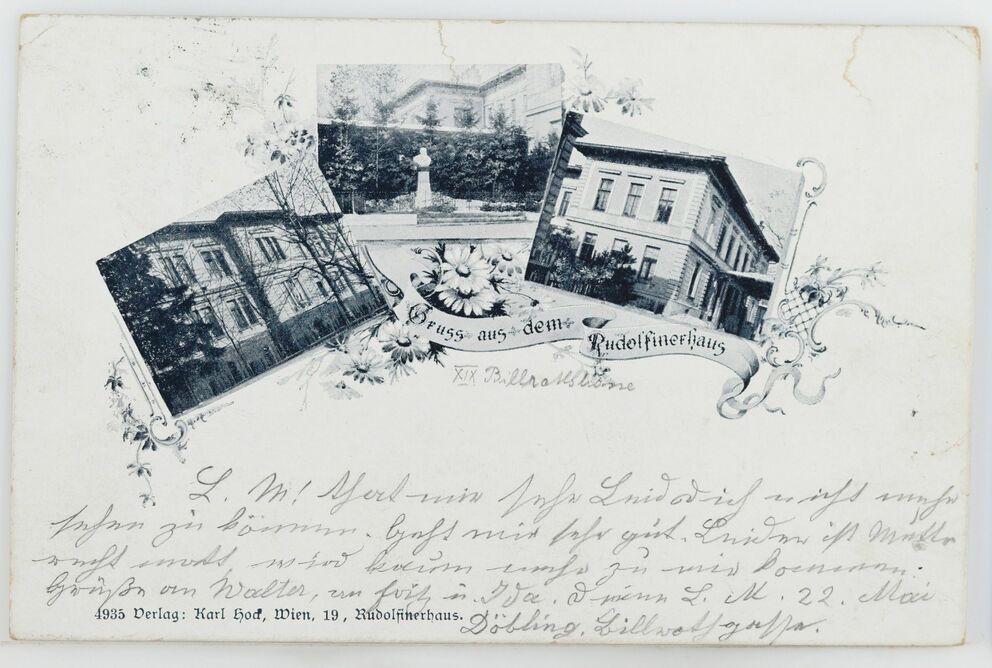 Gruss aus dem
Rudolfinerhaus
XIX Billrothstrasse
L. M! Thut mir sehr Leid dich nicht mehr
sehen zu können. Geht mir sehr gut. Leider ist Mutter
recht matt, wird kaum mehr zu mir kommen.
Grüße an Walter, an Fritz u Ida. Deine L. M. 22. Mai
4935 Verlag: Karl Hock, Wien, 19, Rudolfinerhaus.
Döbling, Billrothgasse.